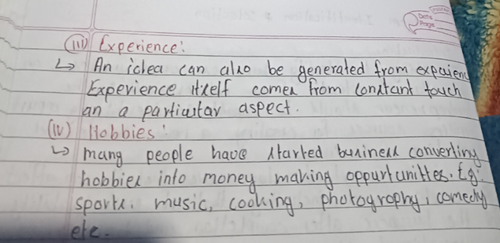 Date
Page
(iii) Experience:
↳ An idea can also be generated from expaien
Experience itself comes from constant touch
an a particular aspect.
(iv) Hobbies:
↳ many people have started business converting
hobbies into money making oppurtunities. Eg.
sports, music, cooking, photography, comedy
etc.